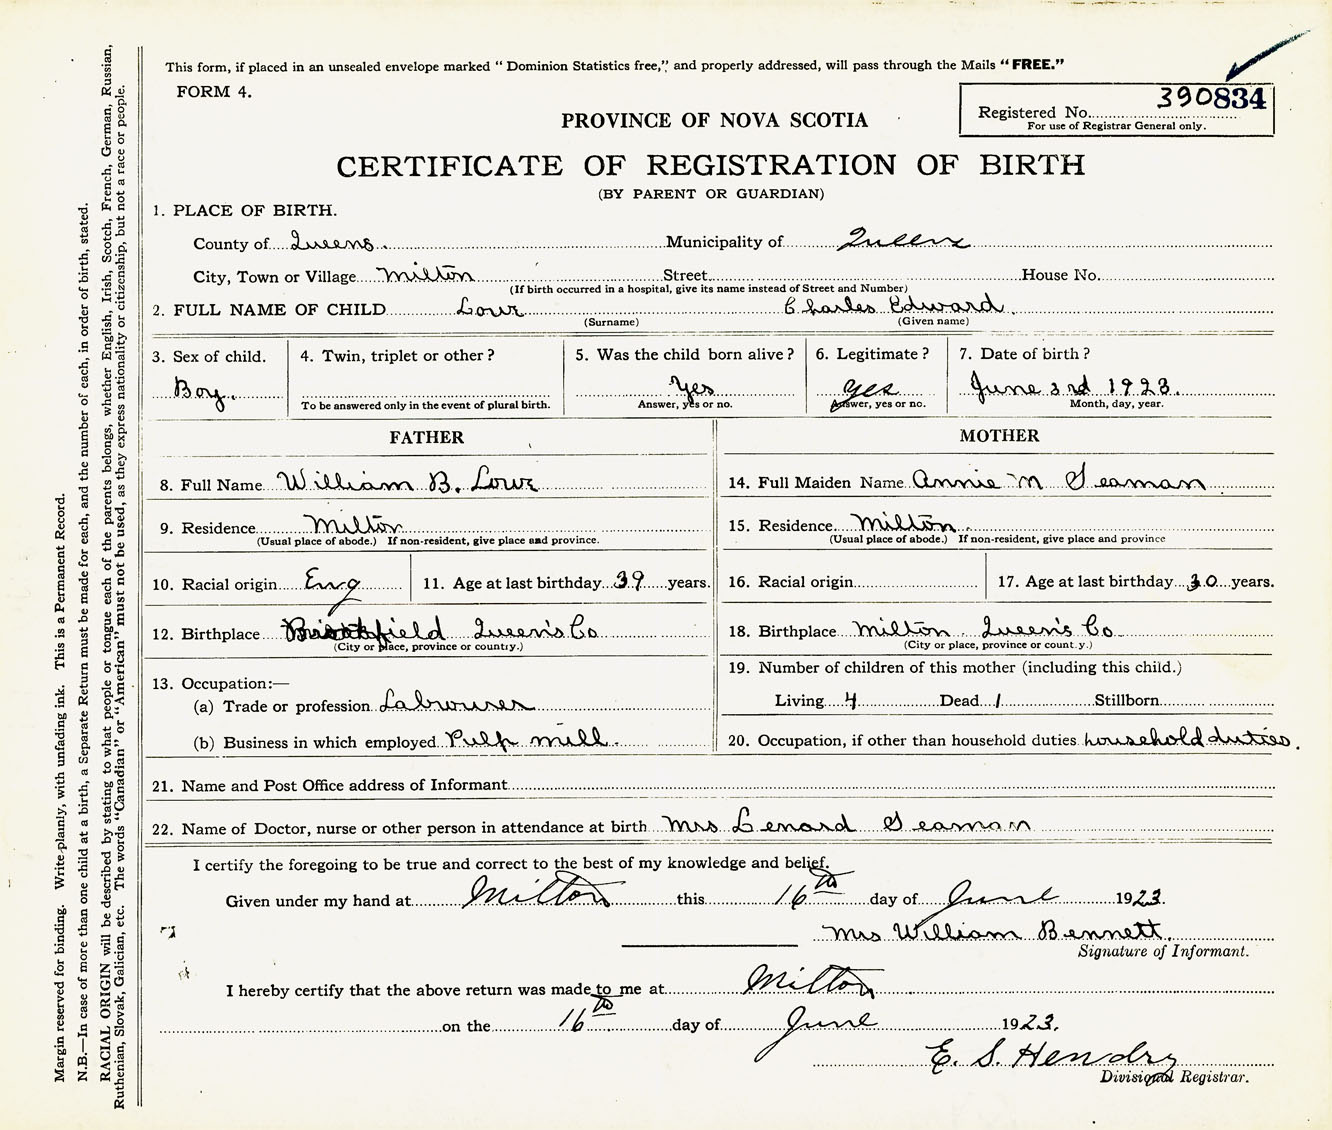 This form, if placed in an unsealed envelope marked "Dominion Statistics free," and properly addressed, will pass through the Mails "FREE."
FORM 4.
390834
Registered No.
For use of Registrar General only.
PROVINCE OF NOVA SCOTIA
CERTIFICATE OF REGISTRATION OF BIRTH
(BY PARENT OR GUARDIAN)
1. PLACE OF BIRTH.
County of Queens. Municipality of Queens
City, Town or Village Milton Street House No.
(If birth occurred in a hospital, give its name instead of Street and Number)
2. FULL NAME OF CHILD Lowe Charles Edward.
(Surname) (Given name)
3. Sex of child. 4. Twin, triplet or other? 5. Was the child born alive? 6. Legitimate? 7. Date of birth?
Boy. Yes yes June 3rd 1923.
To be answered only in the event of plural birth. Answer, yes or no. Answer, yes or no. Month, day, year.
FATHER MOTHER
8. Full Name William B. Lowe 14. Full Maiden Name Annie M Seaman
9. Residence Milton 15. Residence Milton
(Usual place of abode.) If non-resident, give place and province. (Usual place of abode.) If non-resident, give place and province
10. Racial origin Eng 11. Age at last birthday 39 years. 16. Racial origin 17. Age at last birthday 30 years.
12. Birthplace Brookfield Queen's Co 18. Birthplace Milton Queen's Co
(City or place, province or country.) (City or place, province or country.)
19. Number of children of this mother (including this child.)
13. Occupation:—
(a) Trade or profession Labrourer Living 4 Dead 1 Stillborn
(b) Business in which employed Pulp mill. 20. Occupation, if other than household duties household duties.
21. Name and Post Office address of Informant
22. Name of Doctor, nurse or other person in attendance at birth Mrs Lenard Seaman
I certify the foregoing to be true and correct to the best of my knowledge and belief.
Given under my hand at Milton this 16th day of June 1923.
Mrs William Bennett.
Signature of Informant.
I hereby certify that the above return was made to me at Milton
on the 16th day of June 1923.
E. S. Hendry
Divisional Registrar.
Margin reserved for binding. Write plainly, with unfading ink. This is a Permanent Record.
N.B.—In case of more than one child at a birth, a Separate Return must be made for each, and the number of each, in order of birth, stated.
RACIAL ORIGIN will be described by stating to what people or tongue each of the parents belongs, whether English, Irish, Scotch, French, German, Russian,
Ruthenian, Slovak, Galician, etc. The words "Canadian" or "American" must not be used, as they express nationality or citizenship, but not a race or people.